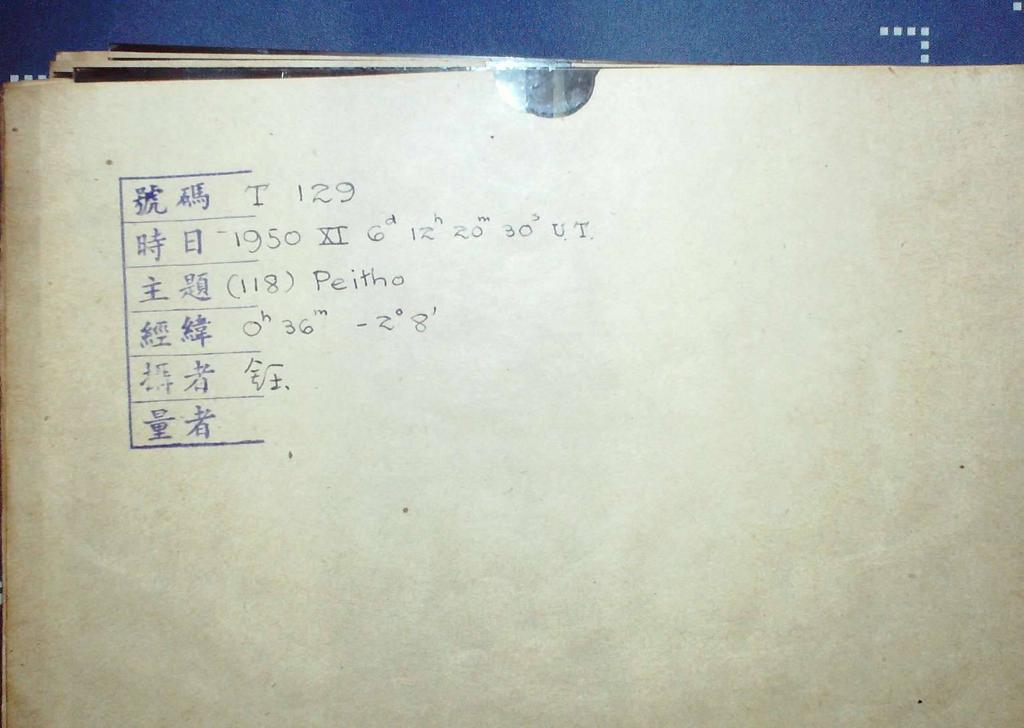 號碼 T 129
時日 1950 XI 6ᵈ 12ʰ 20ᵐ 30ˢ U.T.
主題 (118) Peitho
經緯 0ʰ 36ᵐ -2° 8'
攝者 鈺
量者